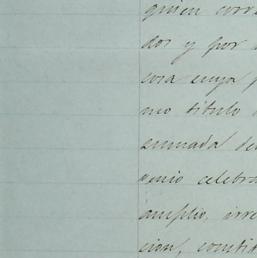 quien corre
dos y por
cosa cuya
mo titulo
enunada
venio celebra
amplio, irre
cion, constit